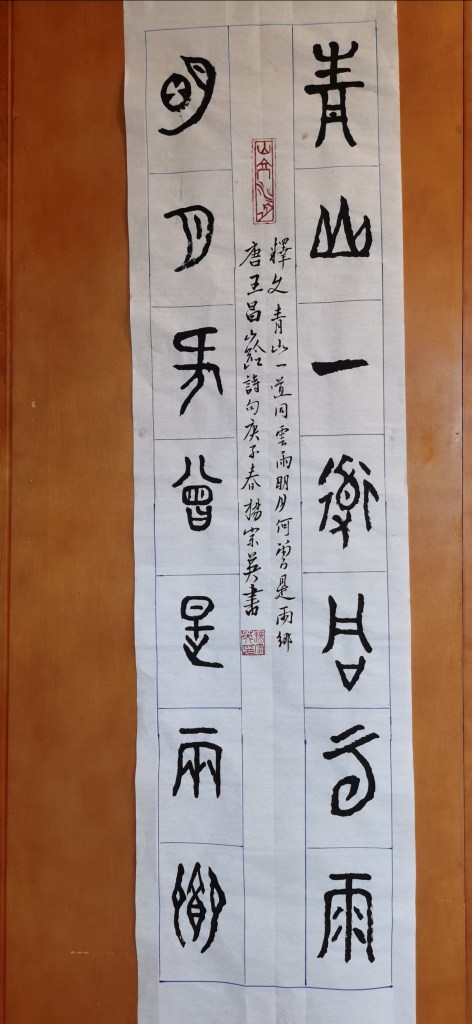 青山一道同云雨
釋文青山一道同雲雨明月何曾是兩鄉
唐王昌齡詩句庚子春楊宗英書
明月何曾是兩鄉